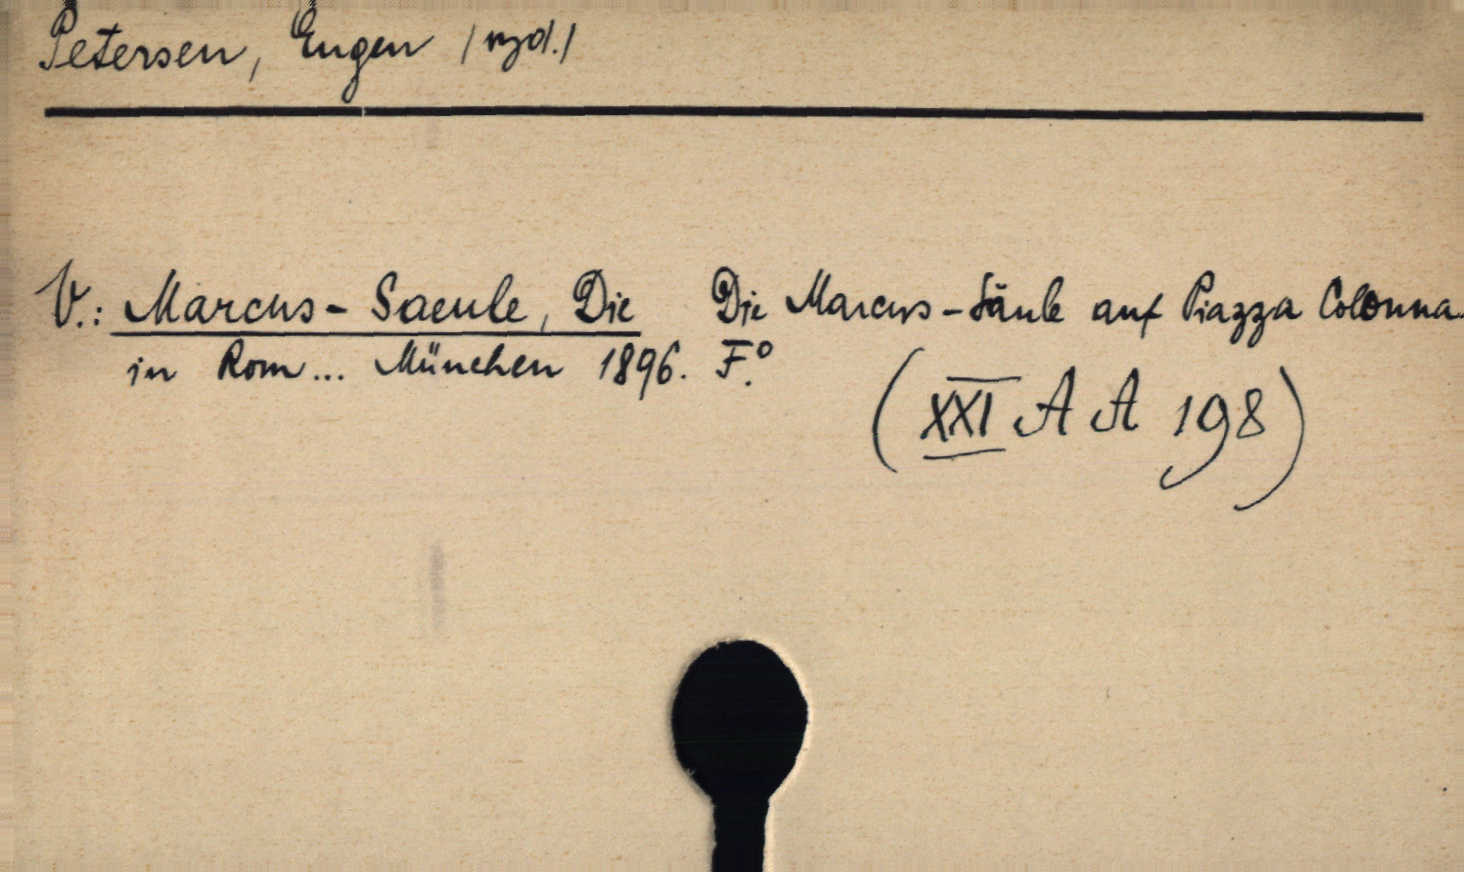 Petersen, Eugen /wyd./
V.: Marcus-Saeule, Die Die Marcus-Säule auf Piazza Colonna
in Rom... München 1896. F.º
(XXI A A 198)